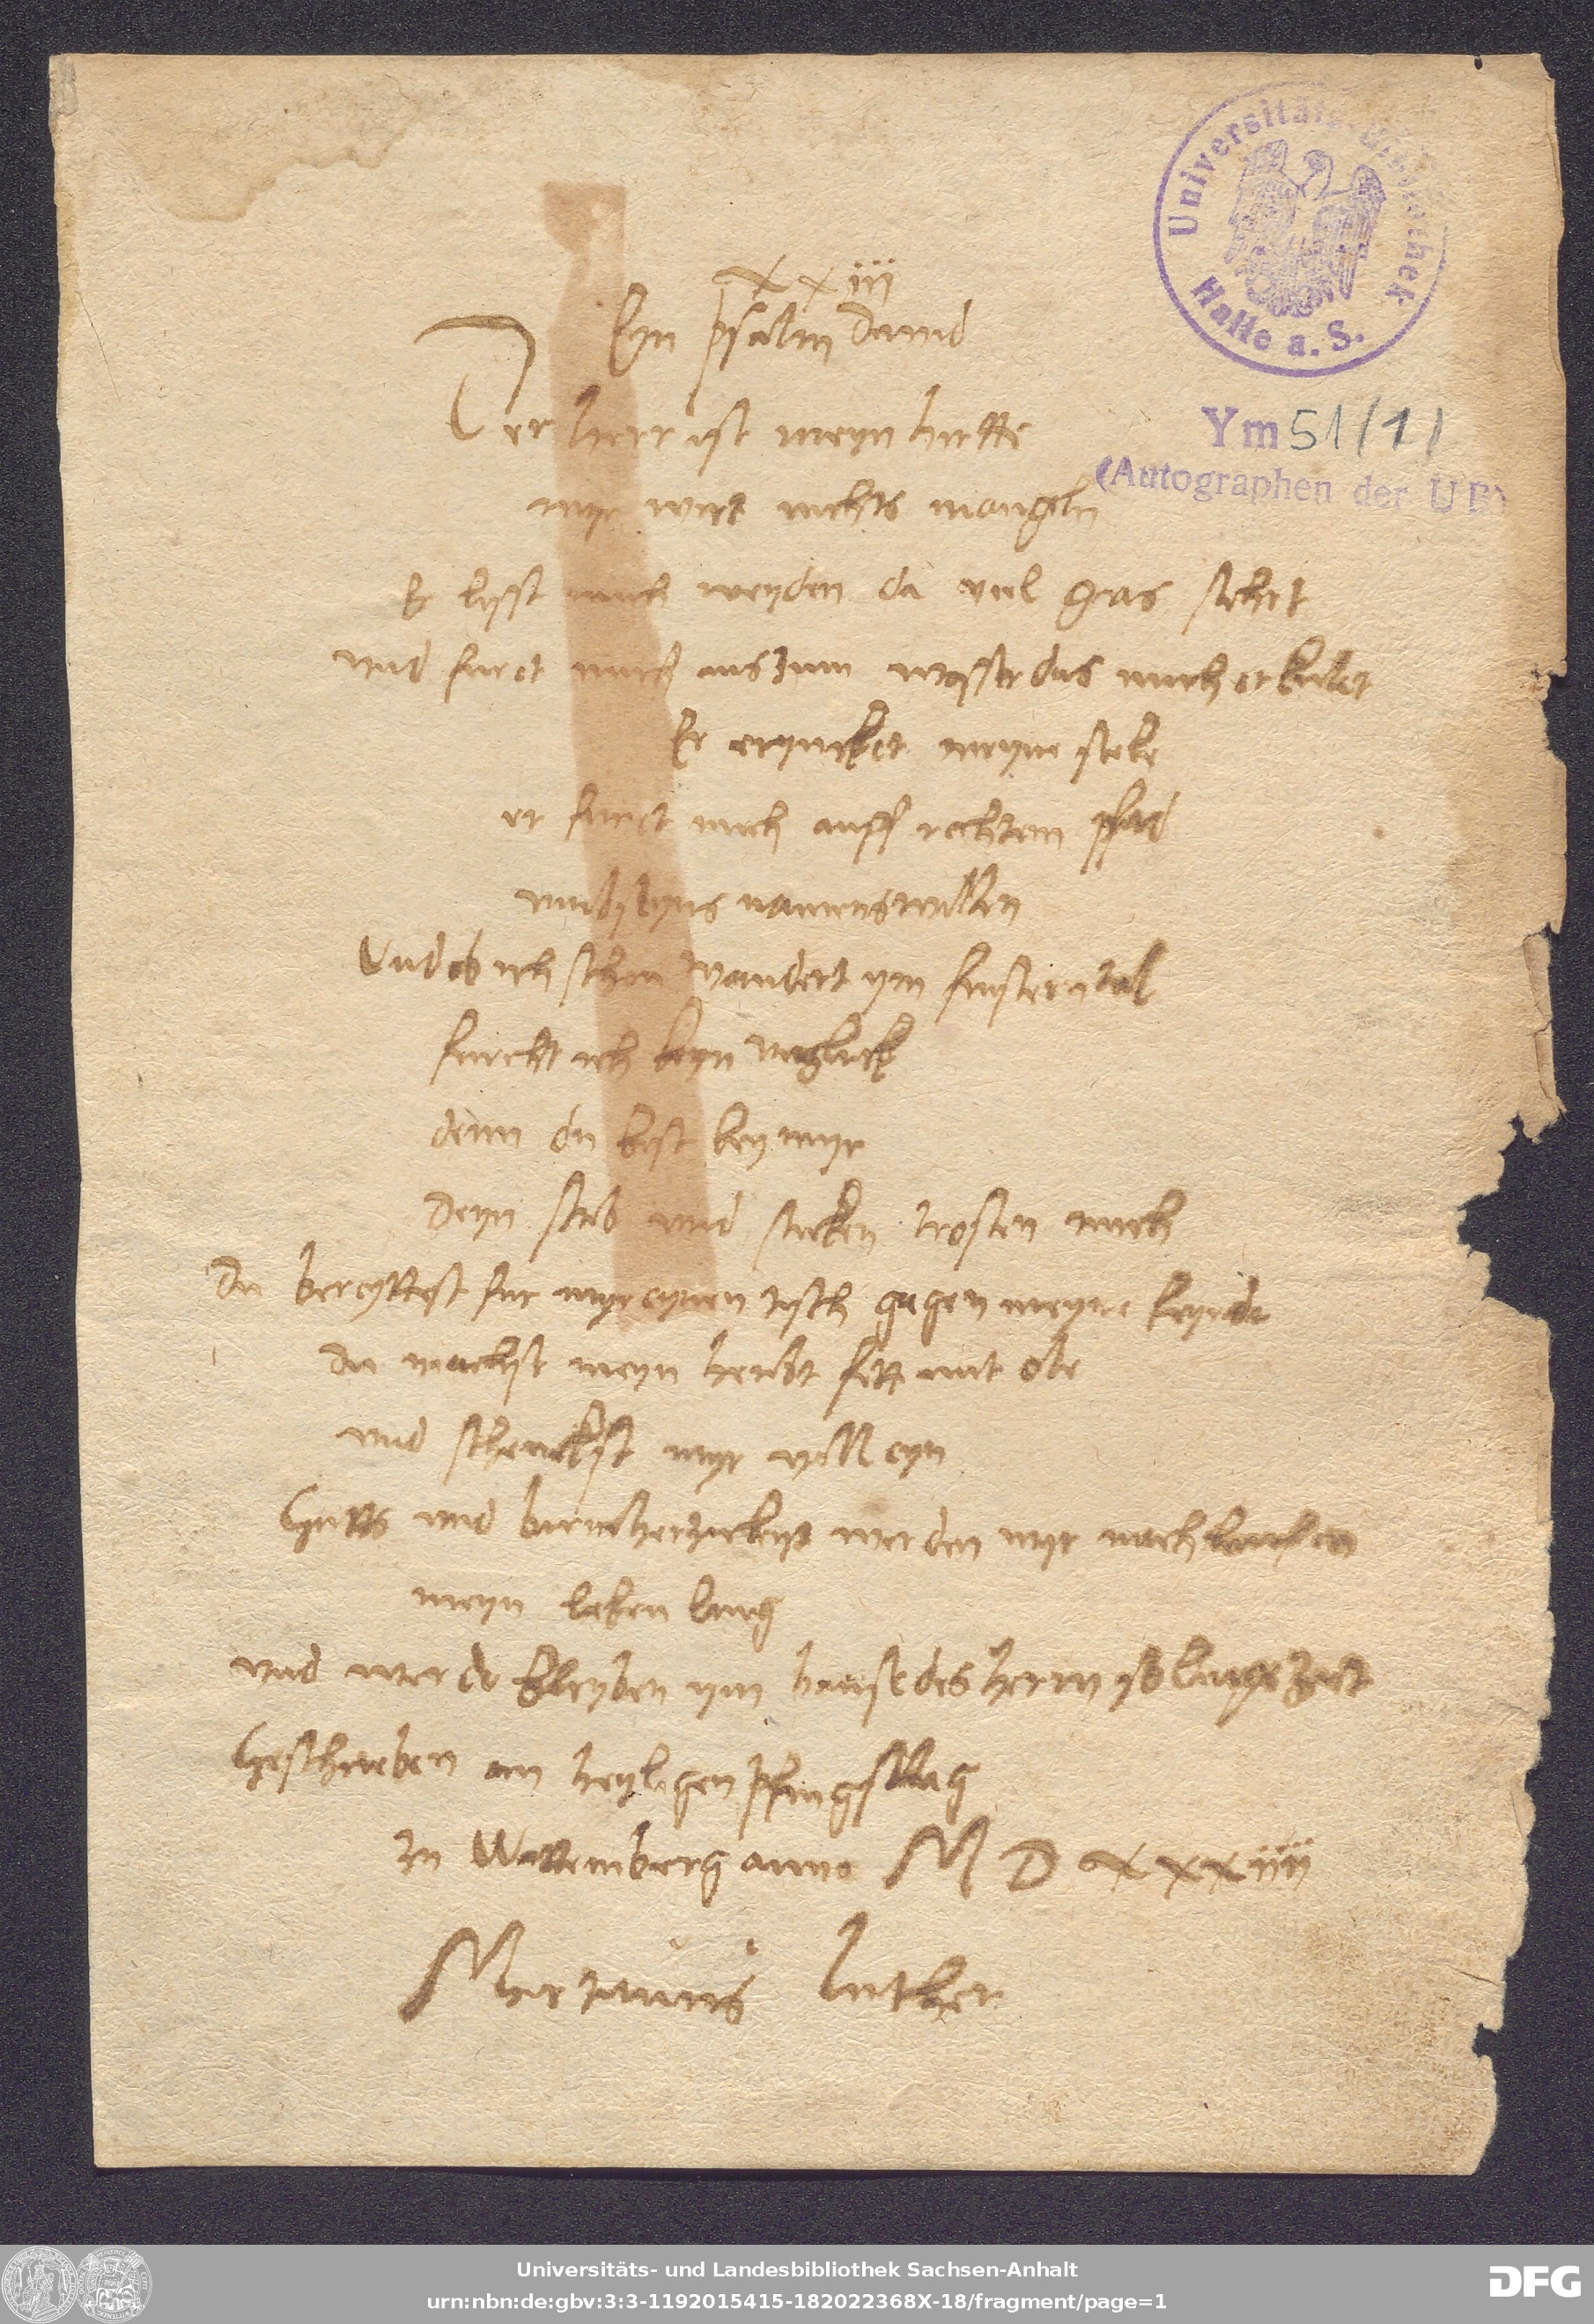 Universitäts-Bibliothek
Halle a. S.
xxiii
Eyn psalm Dauid
Der herr ist meyn hirtte
myr wirt nichts mangeln
Er lesst mich weyden da viel gras stehet
vnd furet mich aus zum wasser das mich erkulet
Er erquicket meyne seele
er furet mich auff rechtem pfad
vmb seyns namens willen
Vnd ob ich schon wandert ym finstern tal
furcht ich keyn vngluck
denn du bist bey myr
deyn stab vnd stecken trosten mich
du bereyttest fur myr eynen tisch gegen meyne feynde
du machst meyn heubt fett mit ole
vnd schenckst myr voll eyn
Gutts vnd barmhertzickeyt werden myr nachlauffen
meyn leben lang
vnd werde bleyben ym hause des herrn
Geschrieben am heyligen Pfingsttag
zu Wittemberg anno M D xxxiiii
Martinus Luther
Ym 51/1)
(Autographen der UB)
Universitäts- und Landesbibliothek Sachsen-Anhalt
urn:nbn:de:gbv:3:3-1192015415-182022368X-18/fragment/page=1
DFG